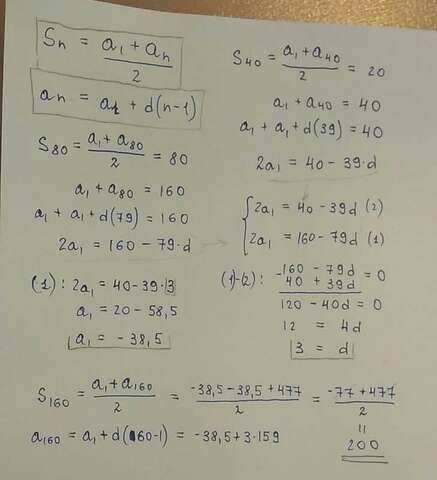 Sn = a1 + an / 2
an = a1 + d(n-1)
S80 = a1 + a80 / 2 = 80
a1 + a80 = 160
a1 + a1 + d(79) = 160
2a1 = 160 - 79·d
S40 = a1 + a40 / 2 = 20
a1 + a40 = 40
a1 + a1 + d(39) = 40
2a1 = 40 - 39·d
2a1 = 40 - 39d (2)
2a1 = 160 - 79d (1)
(1): 2a1 = 40 - 39·3
a1 = 20 - 58,5
a1 = - 38,5
(1)-(2): -160 - 79d = 0
40 + 39d
120 - 40d = 0
12 = 4d
3 = d
S160 = a1 + a160 / 2 = -38,5 - 38,5 + 477 / 2 = -77 + 477 / 2
a160 = a1 + d(160-1) = -38,5 + 3·159
=
200